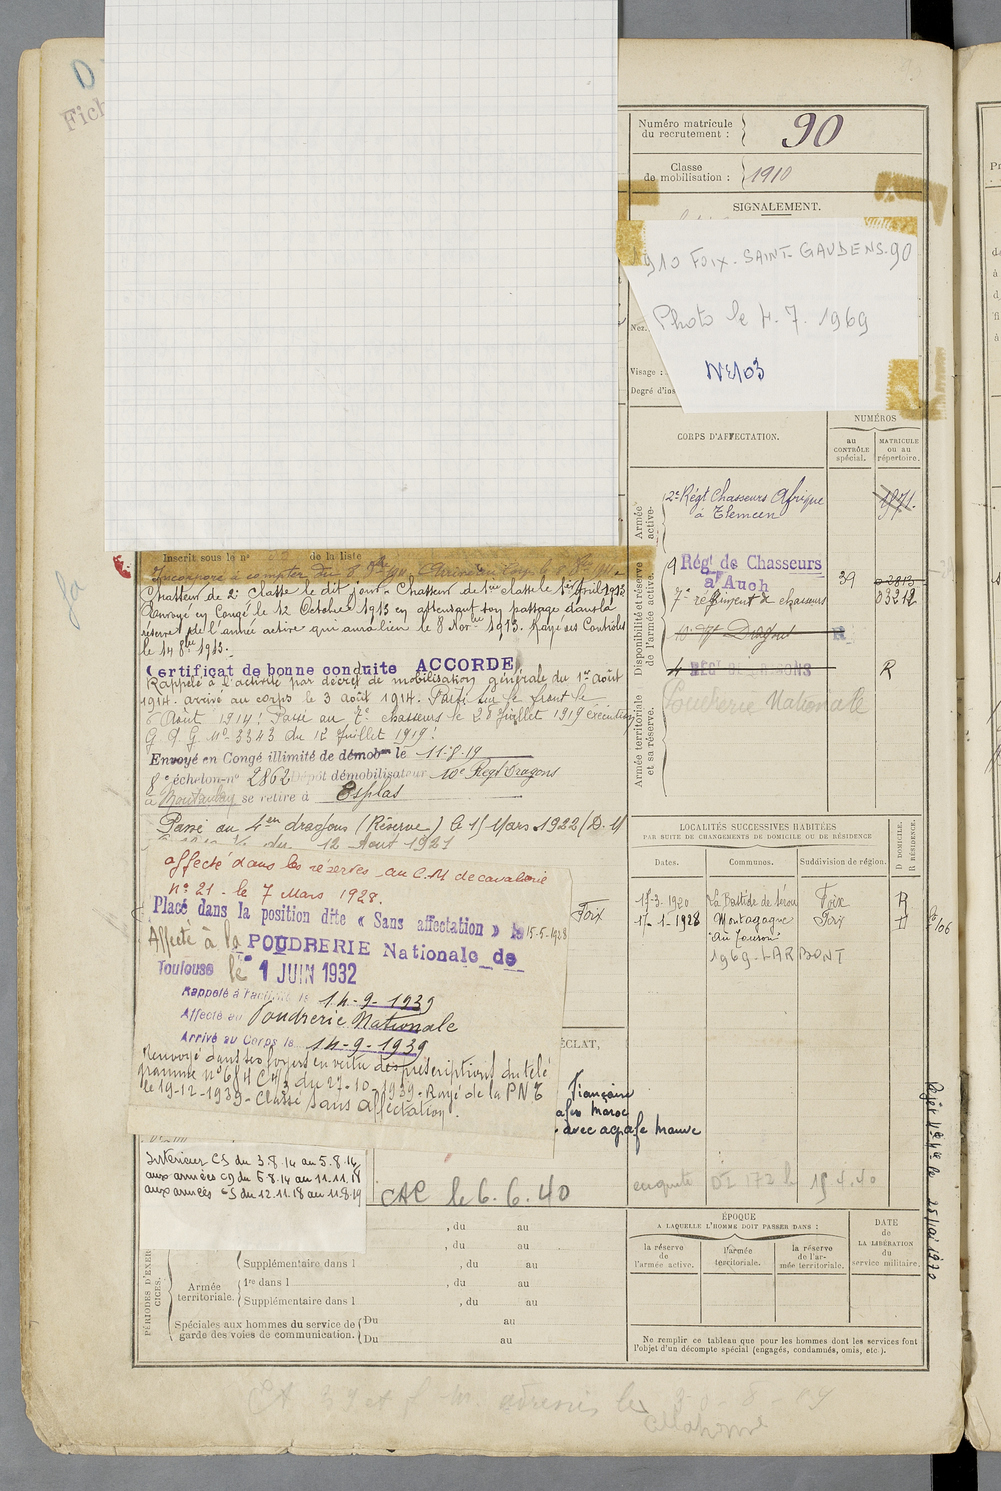 Fich
Numéro matricule
du recrutement :
90
Classe
de mobilisation :
1910
SIGNALEMENT.
1910 FOIX. SAINT-GAUDENS-90
Photo le 4. 7. 1969
Nez
Visage :
Degré d'ins
NUMÉROS
CORPS D'AFFECTATION.
au
CONTRÔLE
spécial.
MATRICULE
ou au
répertoire.
Armée
active.
2e Régt Chasseurs Afrique
à Tlemcen
1871.
Disponibilité et réserve
de l'armée active.
9 Régt de Chasseurs
à Auch
7e régiment de chasseurs
39
03212
10e Rt Dragons
R
4 REGt DE DRAGONS
R
Armée territoriale
et sa réserve.
Poudrerie Nationale
Inscrit sous le n° de la liste
Incorporé à compter du 8 8bre 1911. Arrivé au Corps le 8 8bre 1911
Chasseur de 2e classe le dit jour. Chasseur de 1ère classe le 1er Avril 1913
Envoyé en Congé le 12 Octobre 1913 en attendant son passage dans la
réserve de l'armée active qui aura lieu le 8 Nov. 1913. Rayé des Contrôles
le 14 8bre 1913.
Certificat de bonne conduite ACCORDÉ
Rappelé à l'activité par décret de mobilisation générale du 1er août
1914. arrivé au corps le 3 août 1914. Parti sur le front le
6 Août 1914! Passé au 7e chasseurs le 28 Juillet 1919 exécution
G. Q. G. N° 3343 du 12 Juillet 1919!
Envoyé en Congé illimité de démobon le 11-8-19
8e échelon-n° 2862 Dépôt démobilisateur 10e Régt Dragons
à Montauban se retire à Esplas
Passé au 4em dragons (Réserve) le 15 Mars 1922 (D. M
du 12 Août 1921
affecté dans les réserves au C.M de cavalerie
n° 21 - le 7 Mars 1928.
Placé dans la position dite « Sans affectation » le 15-5-1928
Affecté à la POUDRERIE Nationale de
Toulouse le 1 JUIN 1932
Rappelé à l'activité le 14-9-1939
Affecté au Poudrerie Nationale
Arrivé au Corps le 14-9-1939
Renvoyé dans ses foyers en vertu des prescriptions du télé
gramme n° 684 C4/3 du 27-10-1939. Rayé de la PNT
le 19-12-1939. Classé sans affectation.
LOCALITÉS SUCCESSIVES HABITÉES
PAR SUITE DE CHANGEMENTS DE DOMICILE OU DE RÉSIDENCE
D DOMICILE.
R RÉSIDENCE.
Dates.
Communes.
Subdivision de région.
Foix
15-3-1920 La Bastide de Sérou Foix R
17-1-1928 Montagagne Foix
1969-LARBONT
ÉCLAT,
Française
Maroc
avec agrafe Maroc
Intérieur CS du 3.8.14 au 5.8.14
aux armées CD du 6.8.14 au 11.11.18
aux armées CS du 12.11.18 au 11.8.19
CAC le 6. 6. 40
enquête 172 15 4.40
, du au
, du au
PÉRIODES D'EXER
CICES.
Armée
territoriale.
Supplémentaire dans l , du au
1re dans l , du au
Supplémentaire dans l , du au
Spéciales aux hommes du service de
garde des voies de communication.
Du au
Du au
ÉPOQUE
A LAQUELLE L'HOMME DOIT PASSER DANS :
DATE
de
LA LIBÉRATION
du
service militaire.
la réserve
de
l'armée active.
l'armée
territoriale.
la réserve
de l'ar-
mée territoriale.
Ne remplir ce tableau que pour les hommes dont les services font
l'objet d'un décompte spécial (engagés, condamnés, omis, etc.).